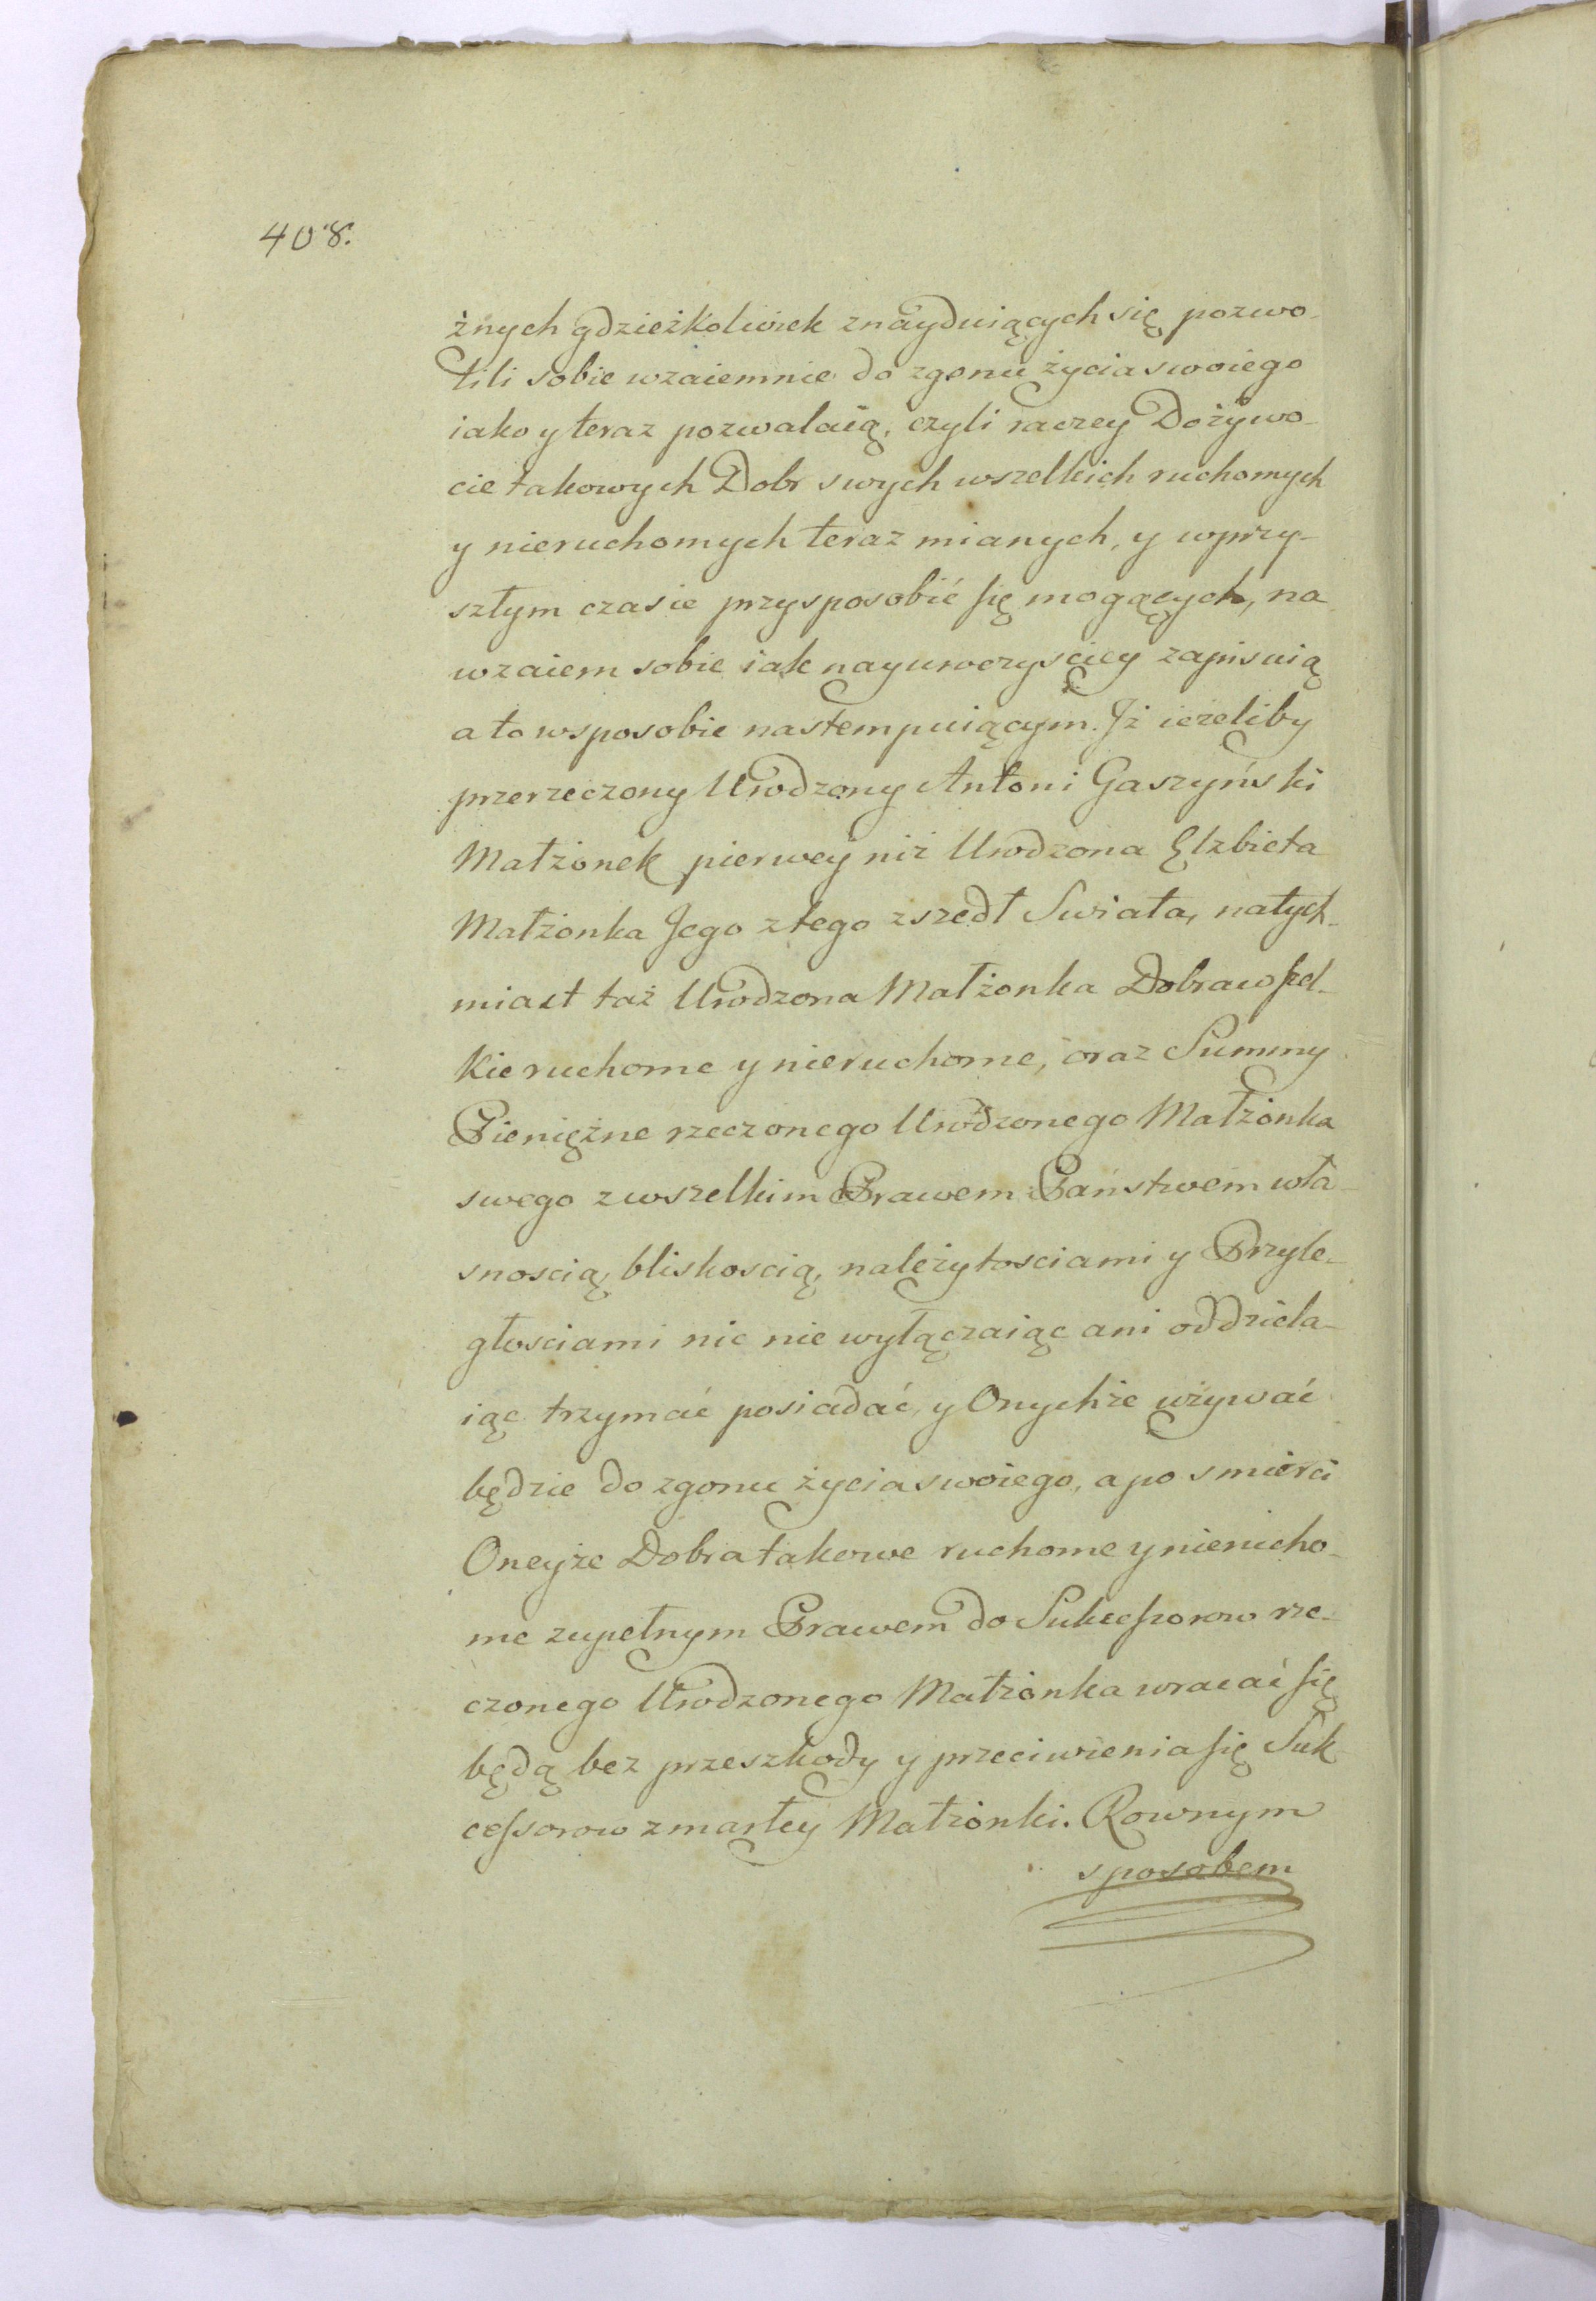 408.
żnych gdzieżkolwiek znayduiących się pozwo-
lili sobie wzaiemnie do zgonu życia swoiego
iako y teraz pozwalaią, czyli raczey Dożywo-
cie takowych Dobr swych wszelkich ruchomych
y nieruchomych teraz mianych, y wprzy-
szłym czasie przysposobić się mogących, na
wzaiem sobie iak nayuroczysciey zapisuią
a to wsposobie nastempuiącym. Jż ieżeliby
przerzeczony Urodzony Antoni Gaszyński
Małżonek pierwey niż Urodzona Elzbieta
Małżonka Jego ztego zszedł Swiata, natych-
miast taż Urodzona Małżonka Dobra wszel-
kie ruchome y nieruchome, oraz Summy
Pieniężne rzeczonego Urodzonego Małżonka
swego zwszelkim Prawem Państwem wła-
snoscią, bliskoscią, należytosciami y Przyle-
głosciami nic nie wyłączaiąc ani oddziela-
iąc trzymać posiadać, y Onychże używać
będzie do zgonu życia swoiego, a po smierci
Oneyże Dobra takowe ruchome y nierucho-
me zupełnym Prawem do Sukcessorow rze-
czonego Urodzonego Małżonka wracać się
będą bez przeszkody y przeciwienia się Suk
cessorow zmarłey Małżonki. Rownym
sposobem